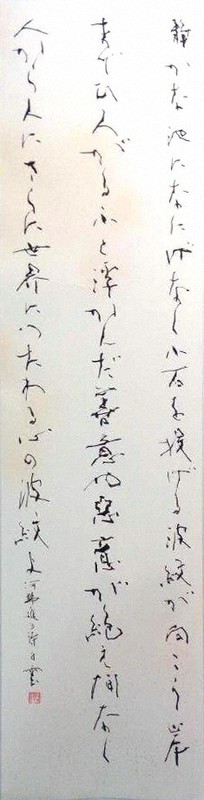 静かな池になにげなく小石を投げる波紋が向こう岸
までひろがるふと浮かんだ善意や悪意が絶え間なく
人から人にさらに世界につたわる心の波紋